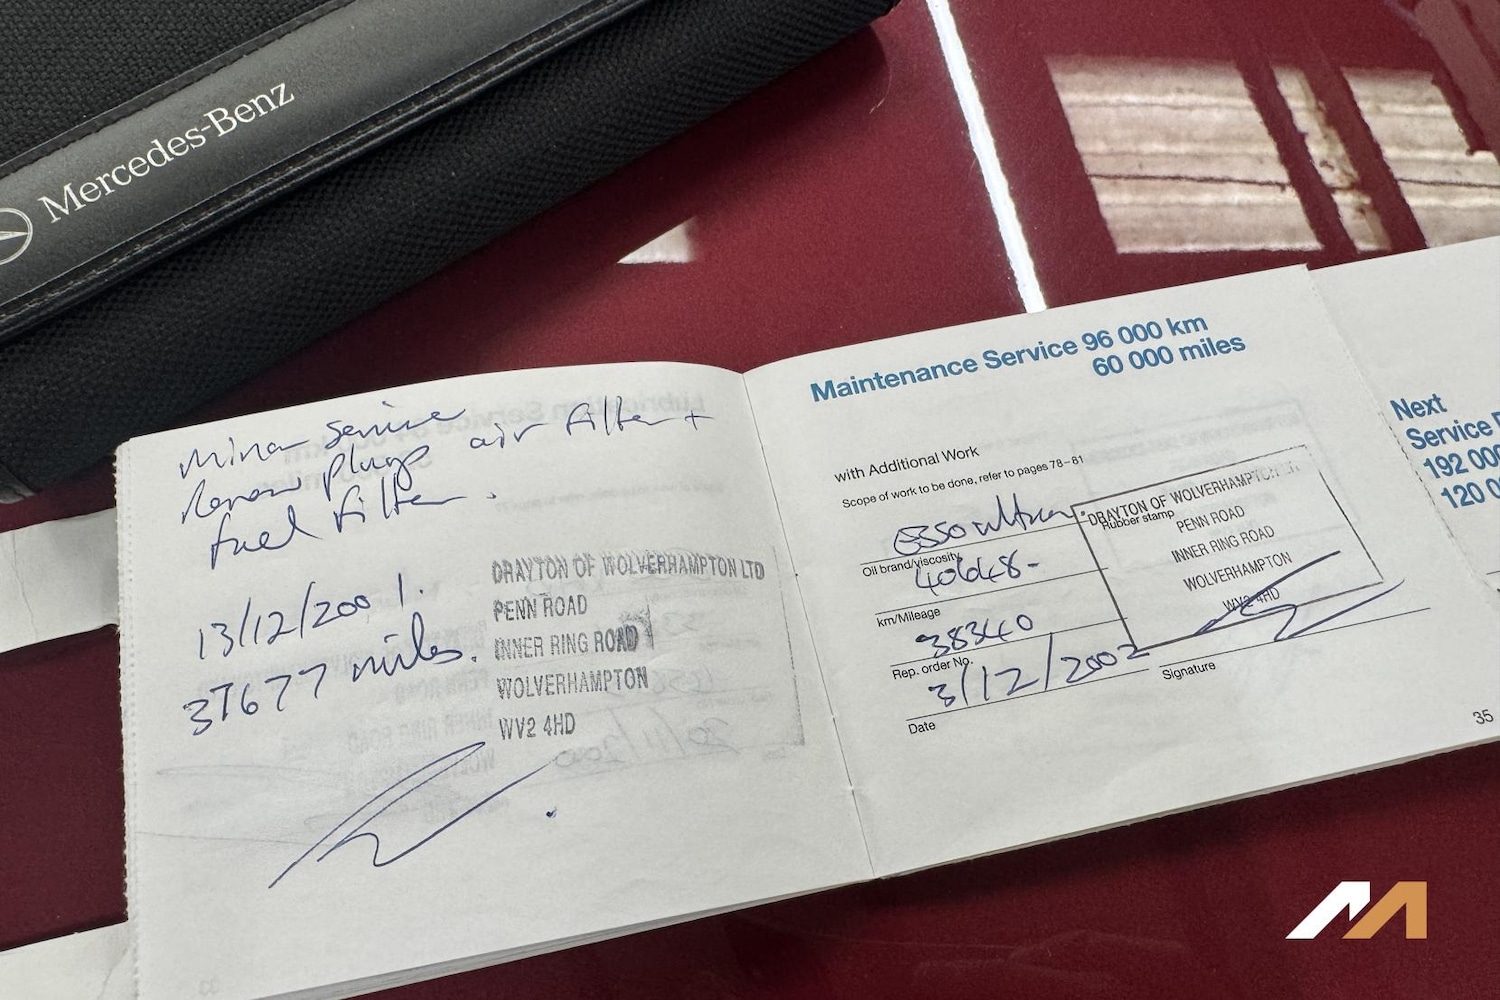 Mercedes-Benz
Minor Service
Renew plugs air filter +
fuel filter.
13/12/2001.
37677 miles.
DRAYTON OF WOLVERHAMPTON LTD
PENN ROAD
INNER RING ROAD
WOLVERHAMPTON
WV2 4HD
Maintenance Service 96 000 km
60 000 miles
with Additional Work
Scope of work to be done, refer to pages 78–81
Esso ultron
Oil brand/viscosity
40648-
km/Mileage
38340
Rep. order No.
3/12/2002
Date
DRAYTON OF WOLVERHAMPTON
Rubber stamp
PENN ROAD
INNER RING ROAD
WOLVERHAMPTON
WV2 4HD
Signature
35
Next
Service
192 00
120 0